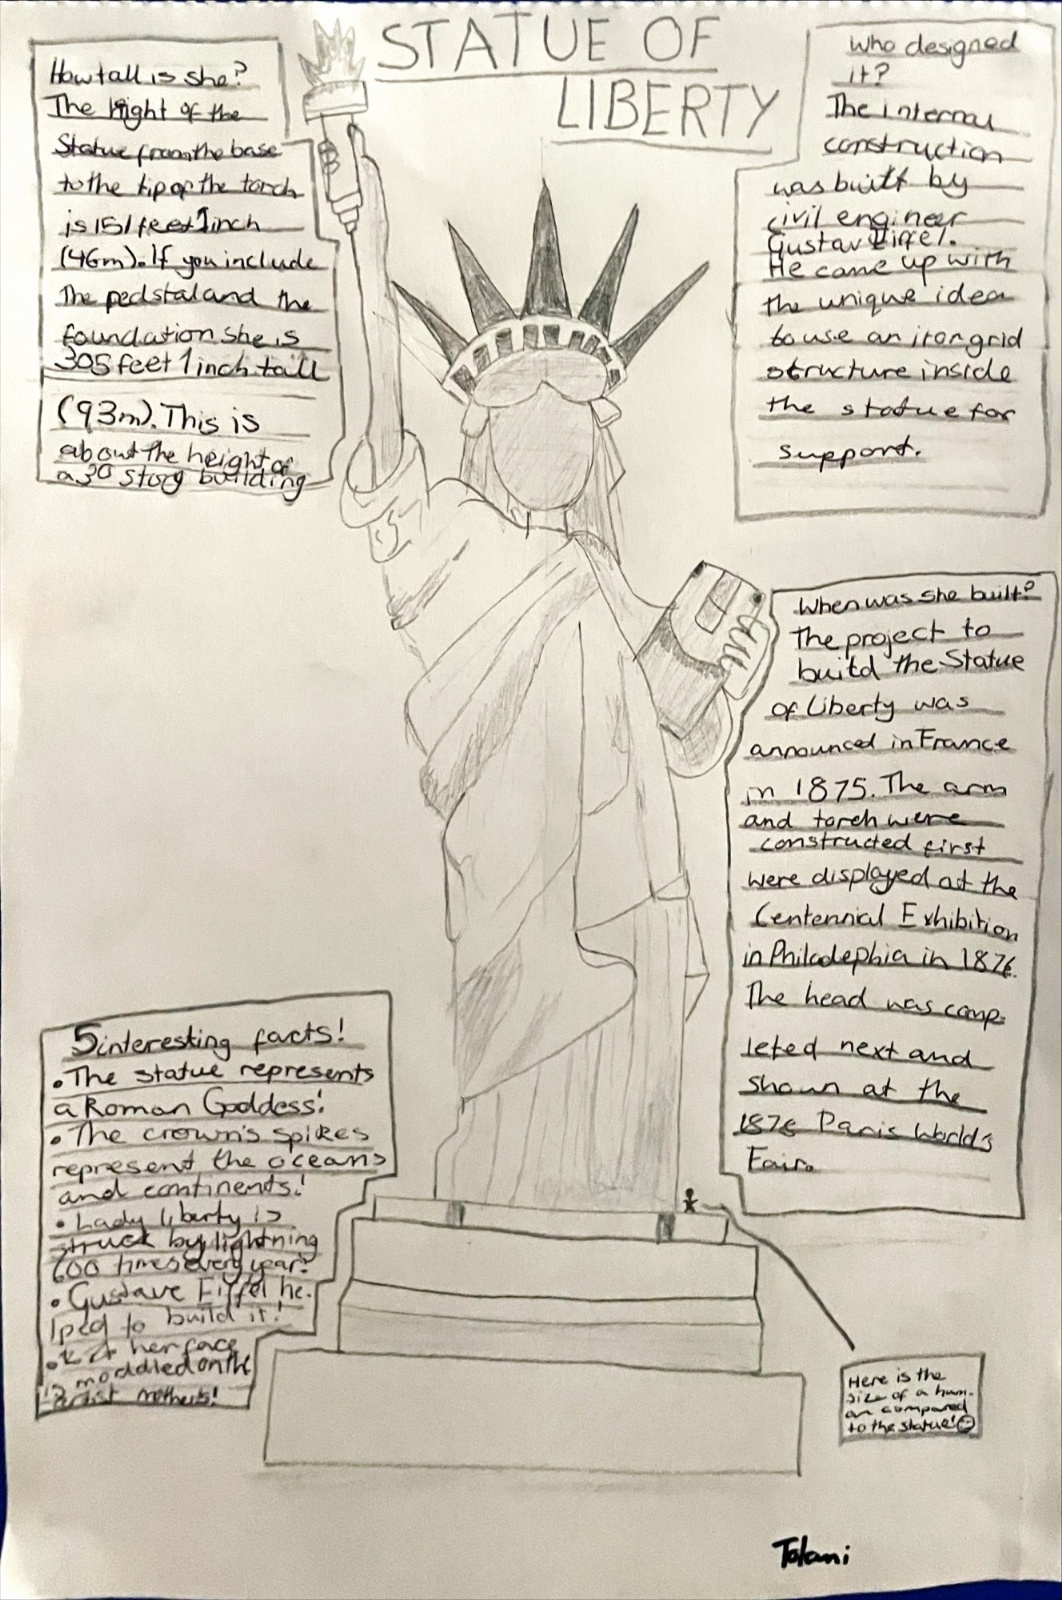 STATUE OF
LIBERTY
How tall is she?
The Hight of the
Statue from the base
to the tip of the torch
is 151 feet 1inch
(46m). If you include
The pedstal and the
foundation she is
305 feet 1 inch tall
(93m). This is
about the height of
a 30 story building
Who designed
it?
The internal
construction
was built by
civil engineer
Gustav Eiffel.
He came up with
the unique idea
to use an iron grid
structure inside
the statue for
support.
When was she built?
The project to
build the Statue
of Liberty was
announced in France
in 1875. The arm
and torch were
constructed first
were displayed at the
Centennial Exhibition
in Philadephia in 1876.
The head was comp-
leted next and
shown at the
1878 Paris World's
Fair.
5 interesting facts!
• The statue represents
a Roman Goddess!
• The crown's spikes
represent the oceans
and continents!
• Lady liberty is
struck by lightning
600 times every year!
• Gustave Eiffel he-
lped to build it!
• her face
is moddled on the
artist mothers!
Here is the
size of a hum-
an compared
to the statue!
Tolani